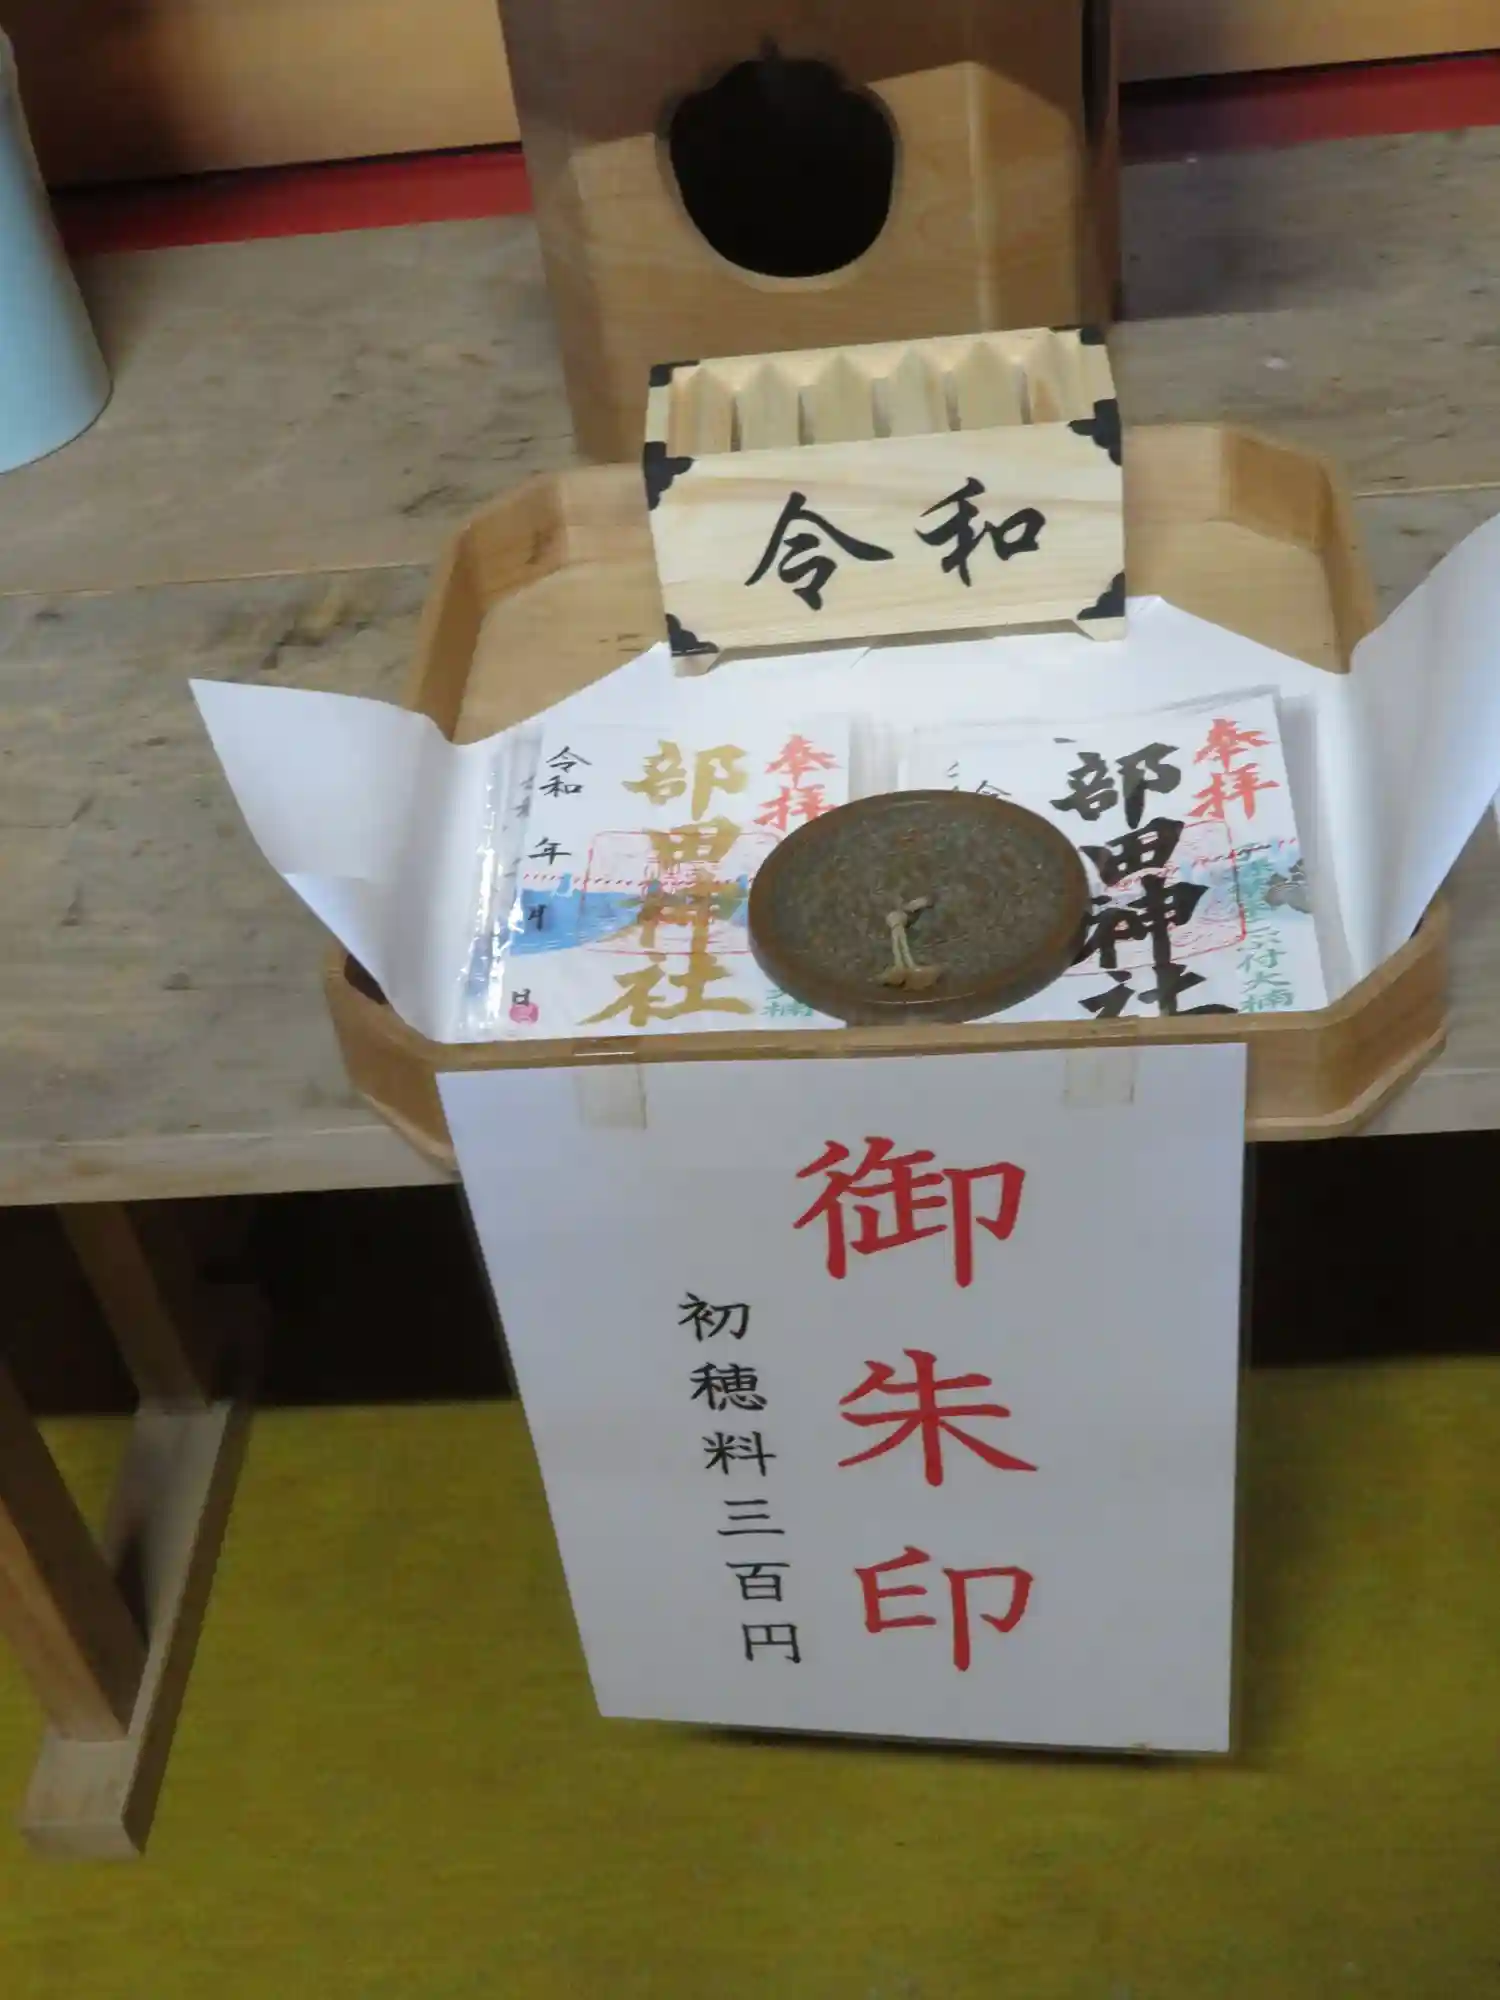 令和
奉拝
部田神社
令和
年
月
日
奉拝
部田神社
御朱印
初穂料三百円